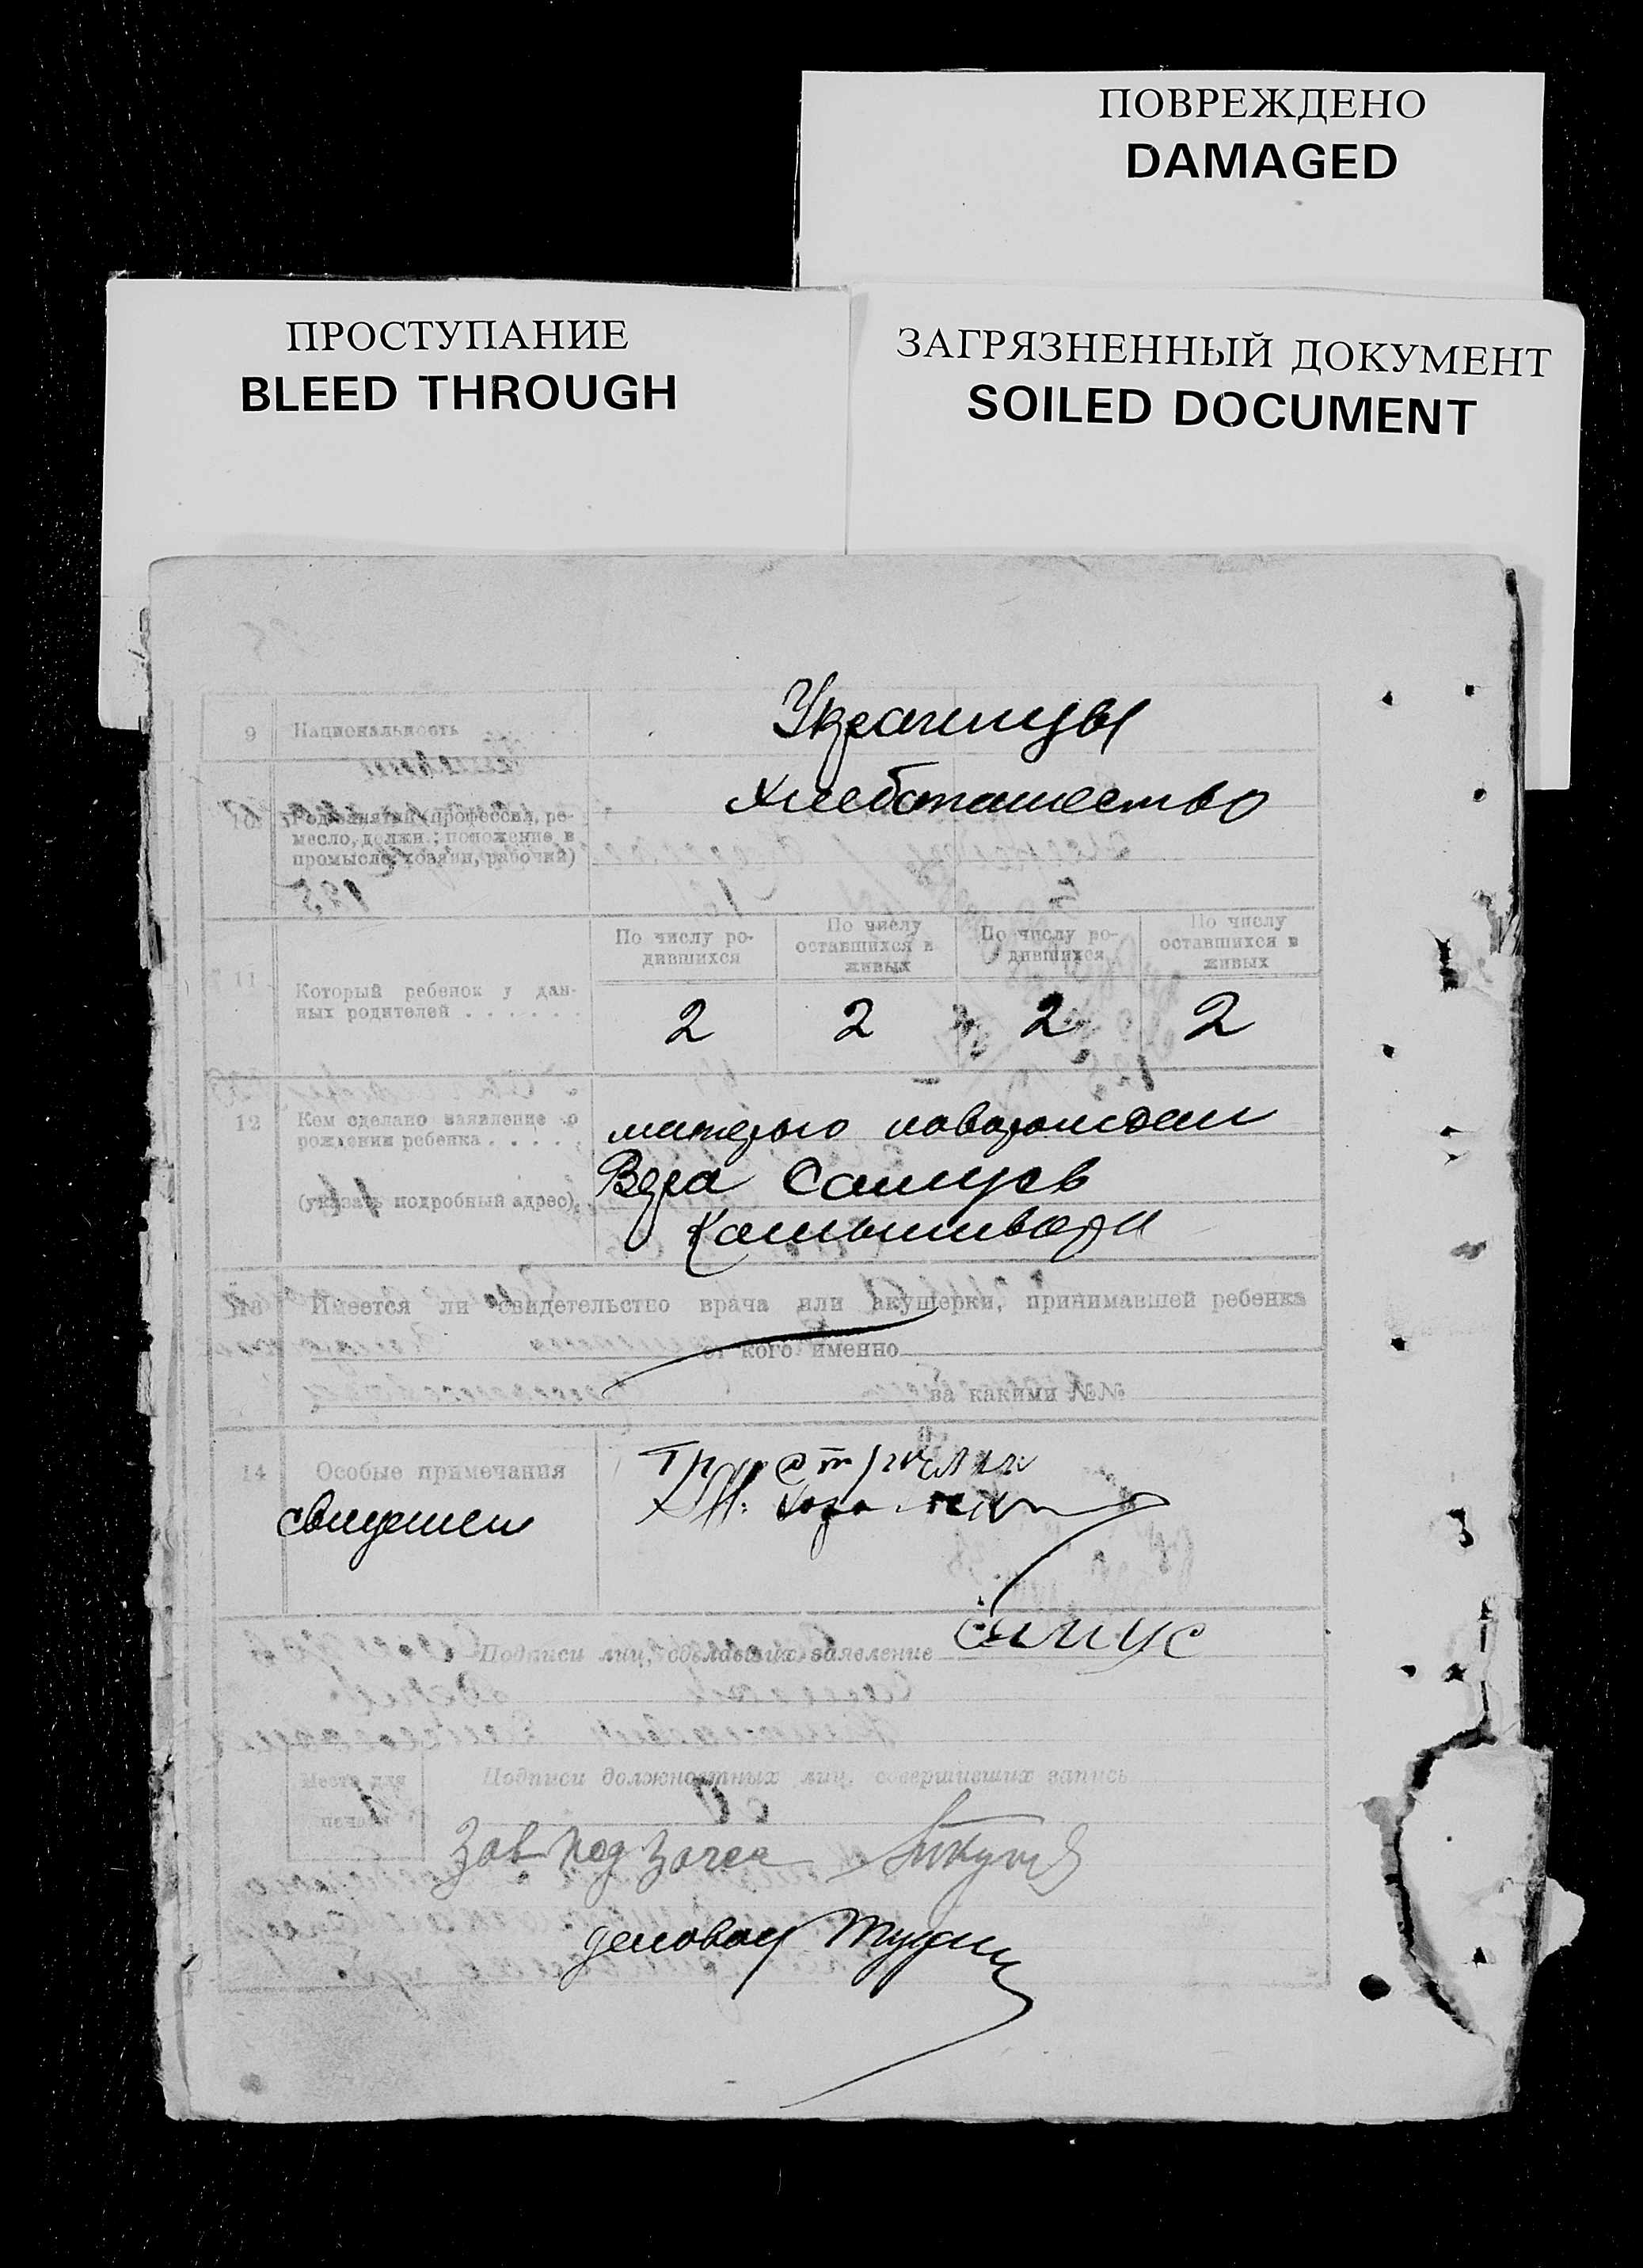 ПОВРЕЖДЕНО
DAMAGED
ПРОСТУПАНИЕ
BLEED THROUGH
ЗАГРЯЗНЕННЫЙ ДОКУМЕНТ
SOILED DOCUMENT
9 Национальность
Украинцы
10 Род занятий (профессия, ре-
месло, должн.; положение в
промысле, хозяин, рабочий)
Хлебопашество
11 Который ребенок у дан-
ных родителей . . . . . .
По числу ро-
дившихся
По числу
оставшихся в
живых
По числу ро-
дившихся
По числу
оставшихся в
живых
2 2 2 2
12 Кем сделано заявление о
рождении ребенка . . . . .
(указать подробный адрес)
матерью
Вера
Имеется ли свидетельство врача или акушерки, принимавшей ребенка
от кого именно
за какими №№
14 Особые примечания
Подписи лиц, сделавших заявление
Место для
печати
Подписи должностных лиц, совершивших запись
Зав под Загса